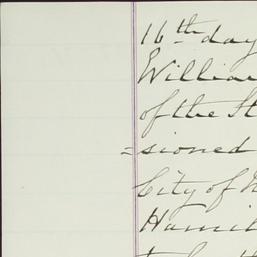 16th day
William
of the St
=sioned
City of
Hamil